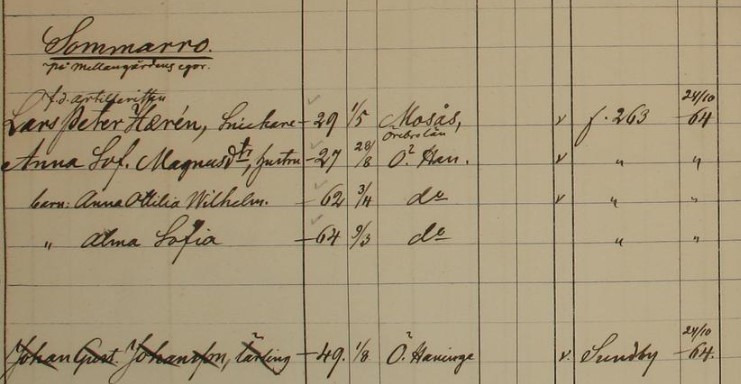 Sommarro.
på Mellangårdens egor.
f.d. artilleristen
Lars Peter Hærén, Snickare -29 1/5 Mosås, v f. 263 24/10 -64
Örebro län
Anna Sof. Magnusdtr, hustru -27 28/8 Ö. Han. v " "
barn: Anna Ottilia Wilhelm. -62 3/4 do v " "
" Alma Sofia -64 9/3 do " "
24/10
Johan Gust. Johansson, lärling -49. 1/8 Ö. Haninge v. Sundby -64.